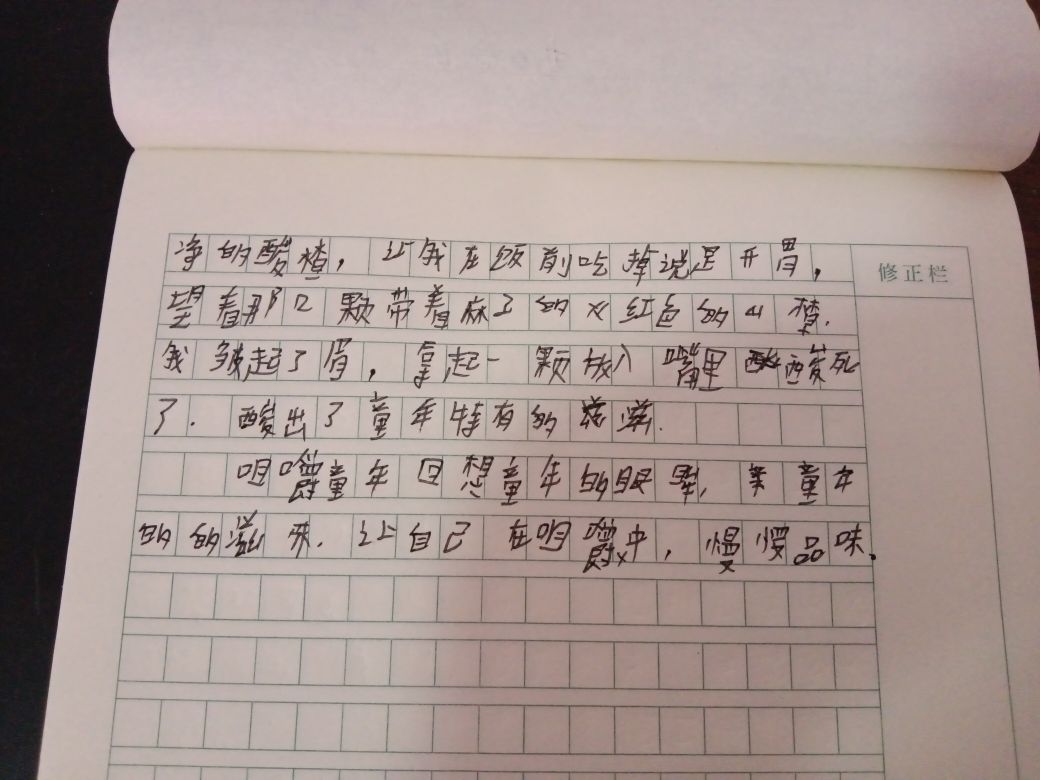 净的酸楂，让我在饭前吃掉说是开胃，
修正栏
望着那几颗带着麻子的火红色的山楂.
我皱起了眉，拿起一颗放入嘴里 酸死
了. 酸出了童年特有的滋
咀嚼童年回想童年的，童年
的的滋味. 让自己在咀嚼中，慢慢品味.